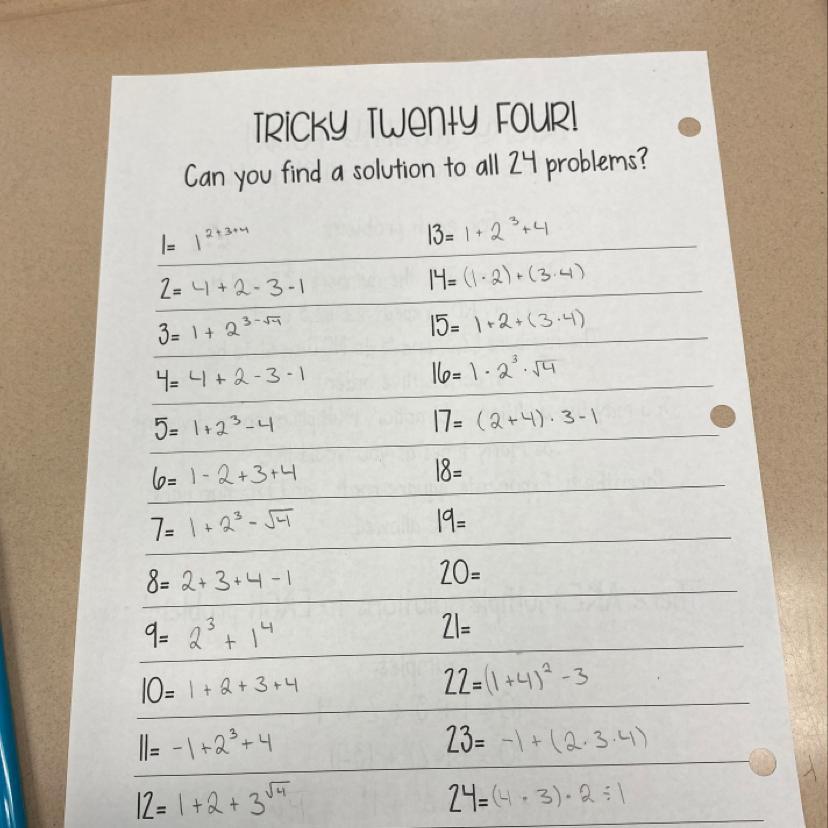 TRICKY TWENTY FOUR!
Can you find a solution to all 24 problems?
1= 1²⁺³⁺⁴
2= 4+2-3-1
3= 1+2^(3-√4)
4= 4+2-3-1
5= 1+2³-4
6= 1-2+3+4
7= 1+2³-√4
8= 2+3+4-1
9= 2³+1⁴
10= 1+2+3+4
11= -1+2³+4
12= 1+2+3^√4
13= 1+2³+4
14= (1·2)+(3·4)
15= 1+2+(3·4)
16= 1·2³·√4
17= (2+4)·3-1
18=
19=
20=
21=
22= (1+4)²-3
23= -1+(2·3·4)
24= (4·3)·2÷1